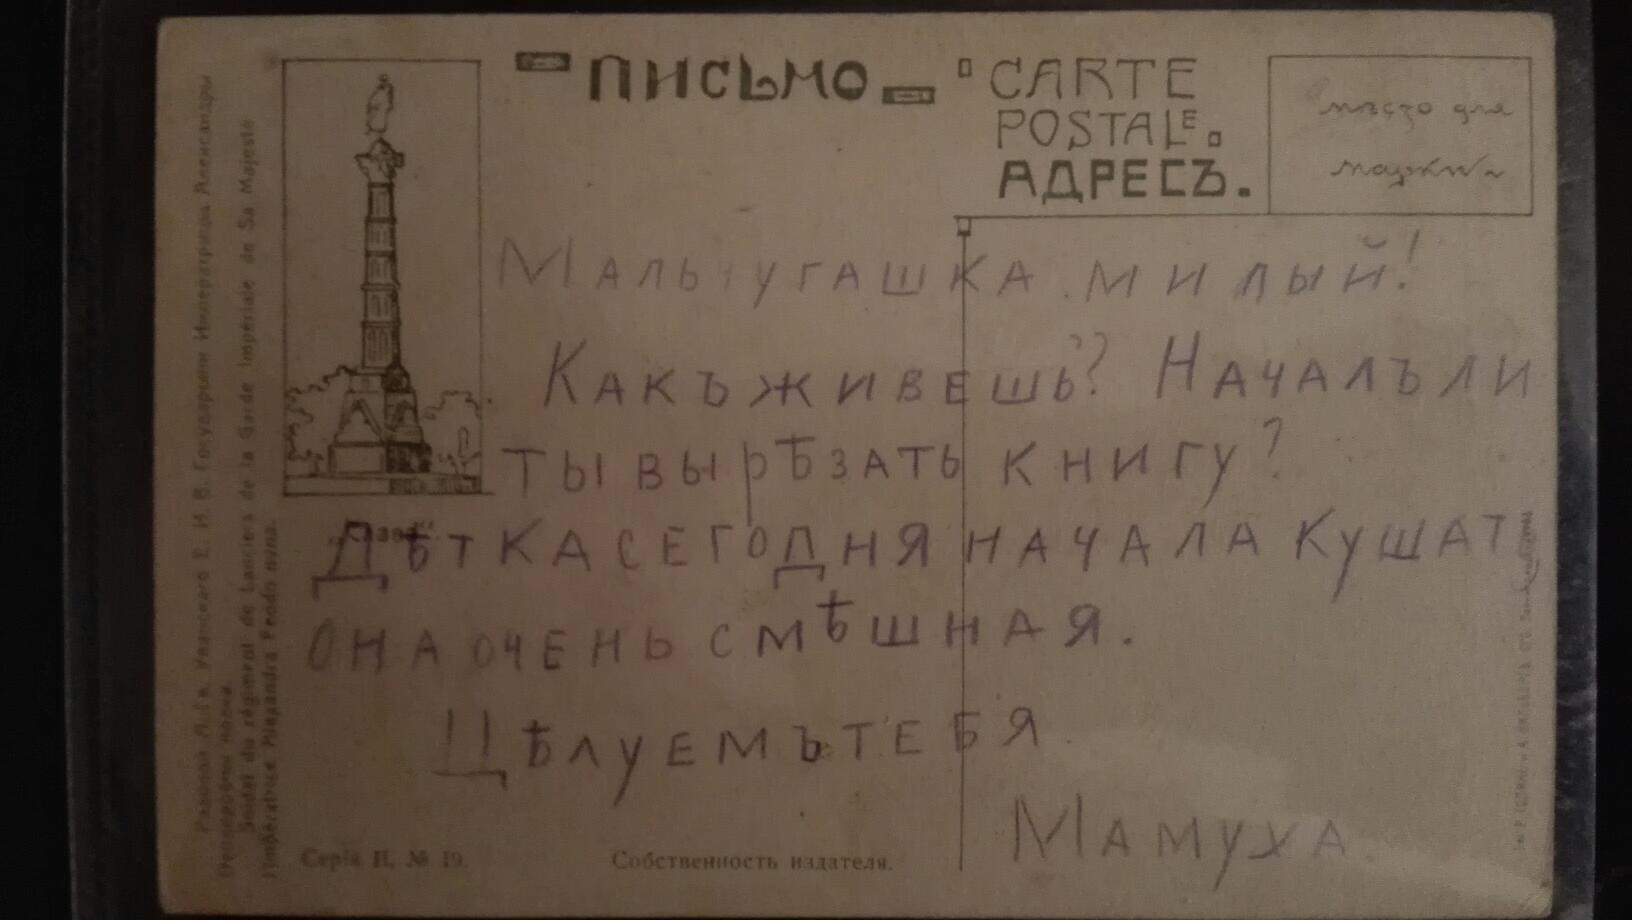 ПИСЬМО
CARTE
POSTALE.
АДРЕСЪ.
мѣсто для
марки
Мальчугашка милый!
Какъ живешь? Началъ ли
ты вырѣзать книгу?
Дѣтка сегодня начала кушат
она очень смѣшная.
Цѣлуемъ тебя.
Мамуха.
Рядовой Л.-Гв. Уланскаго Е. И. В. Государыни Императрицы Александры
Ѳеодоровны полка.
Soldat du régiment de Lanciers de la Garde Impériale de Sa Majesté
l'Impératrice Alexandra Feodorovna.
Серія II, № 19.
Собственность издателя.